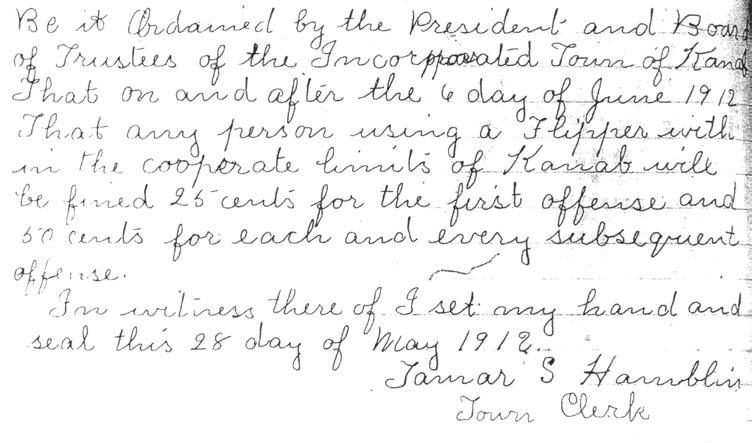 Be it Ordained by the President and Board
of Trustees of the Incorpporated Town of Kanab
That on and after the 6 day of June 1912
That any person using a Flipper with
in the cooperate limits of Kanab will
be fined 25 cents for the first offense and
50 cents for each and every subsequent
offense.
In witness there of I set my hand and
seal this 28 day of May 1912.
Tamar S Hamblin
Town Clerk